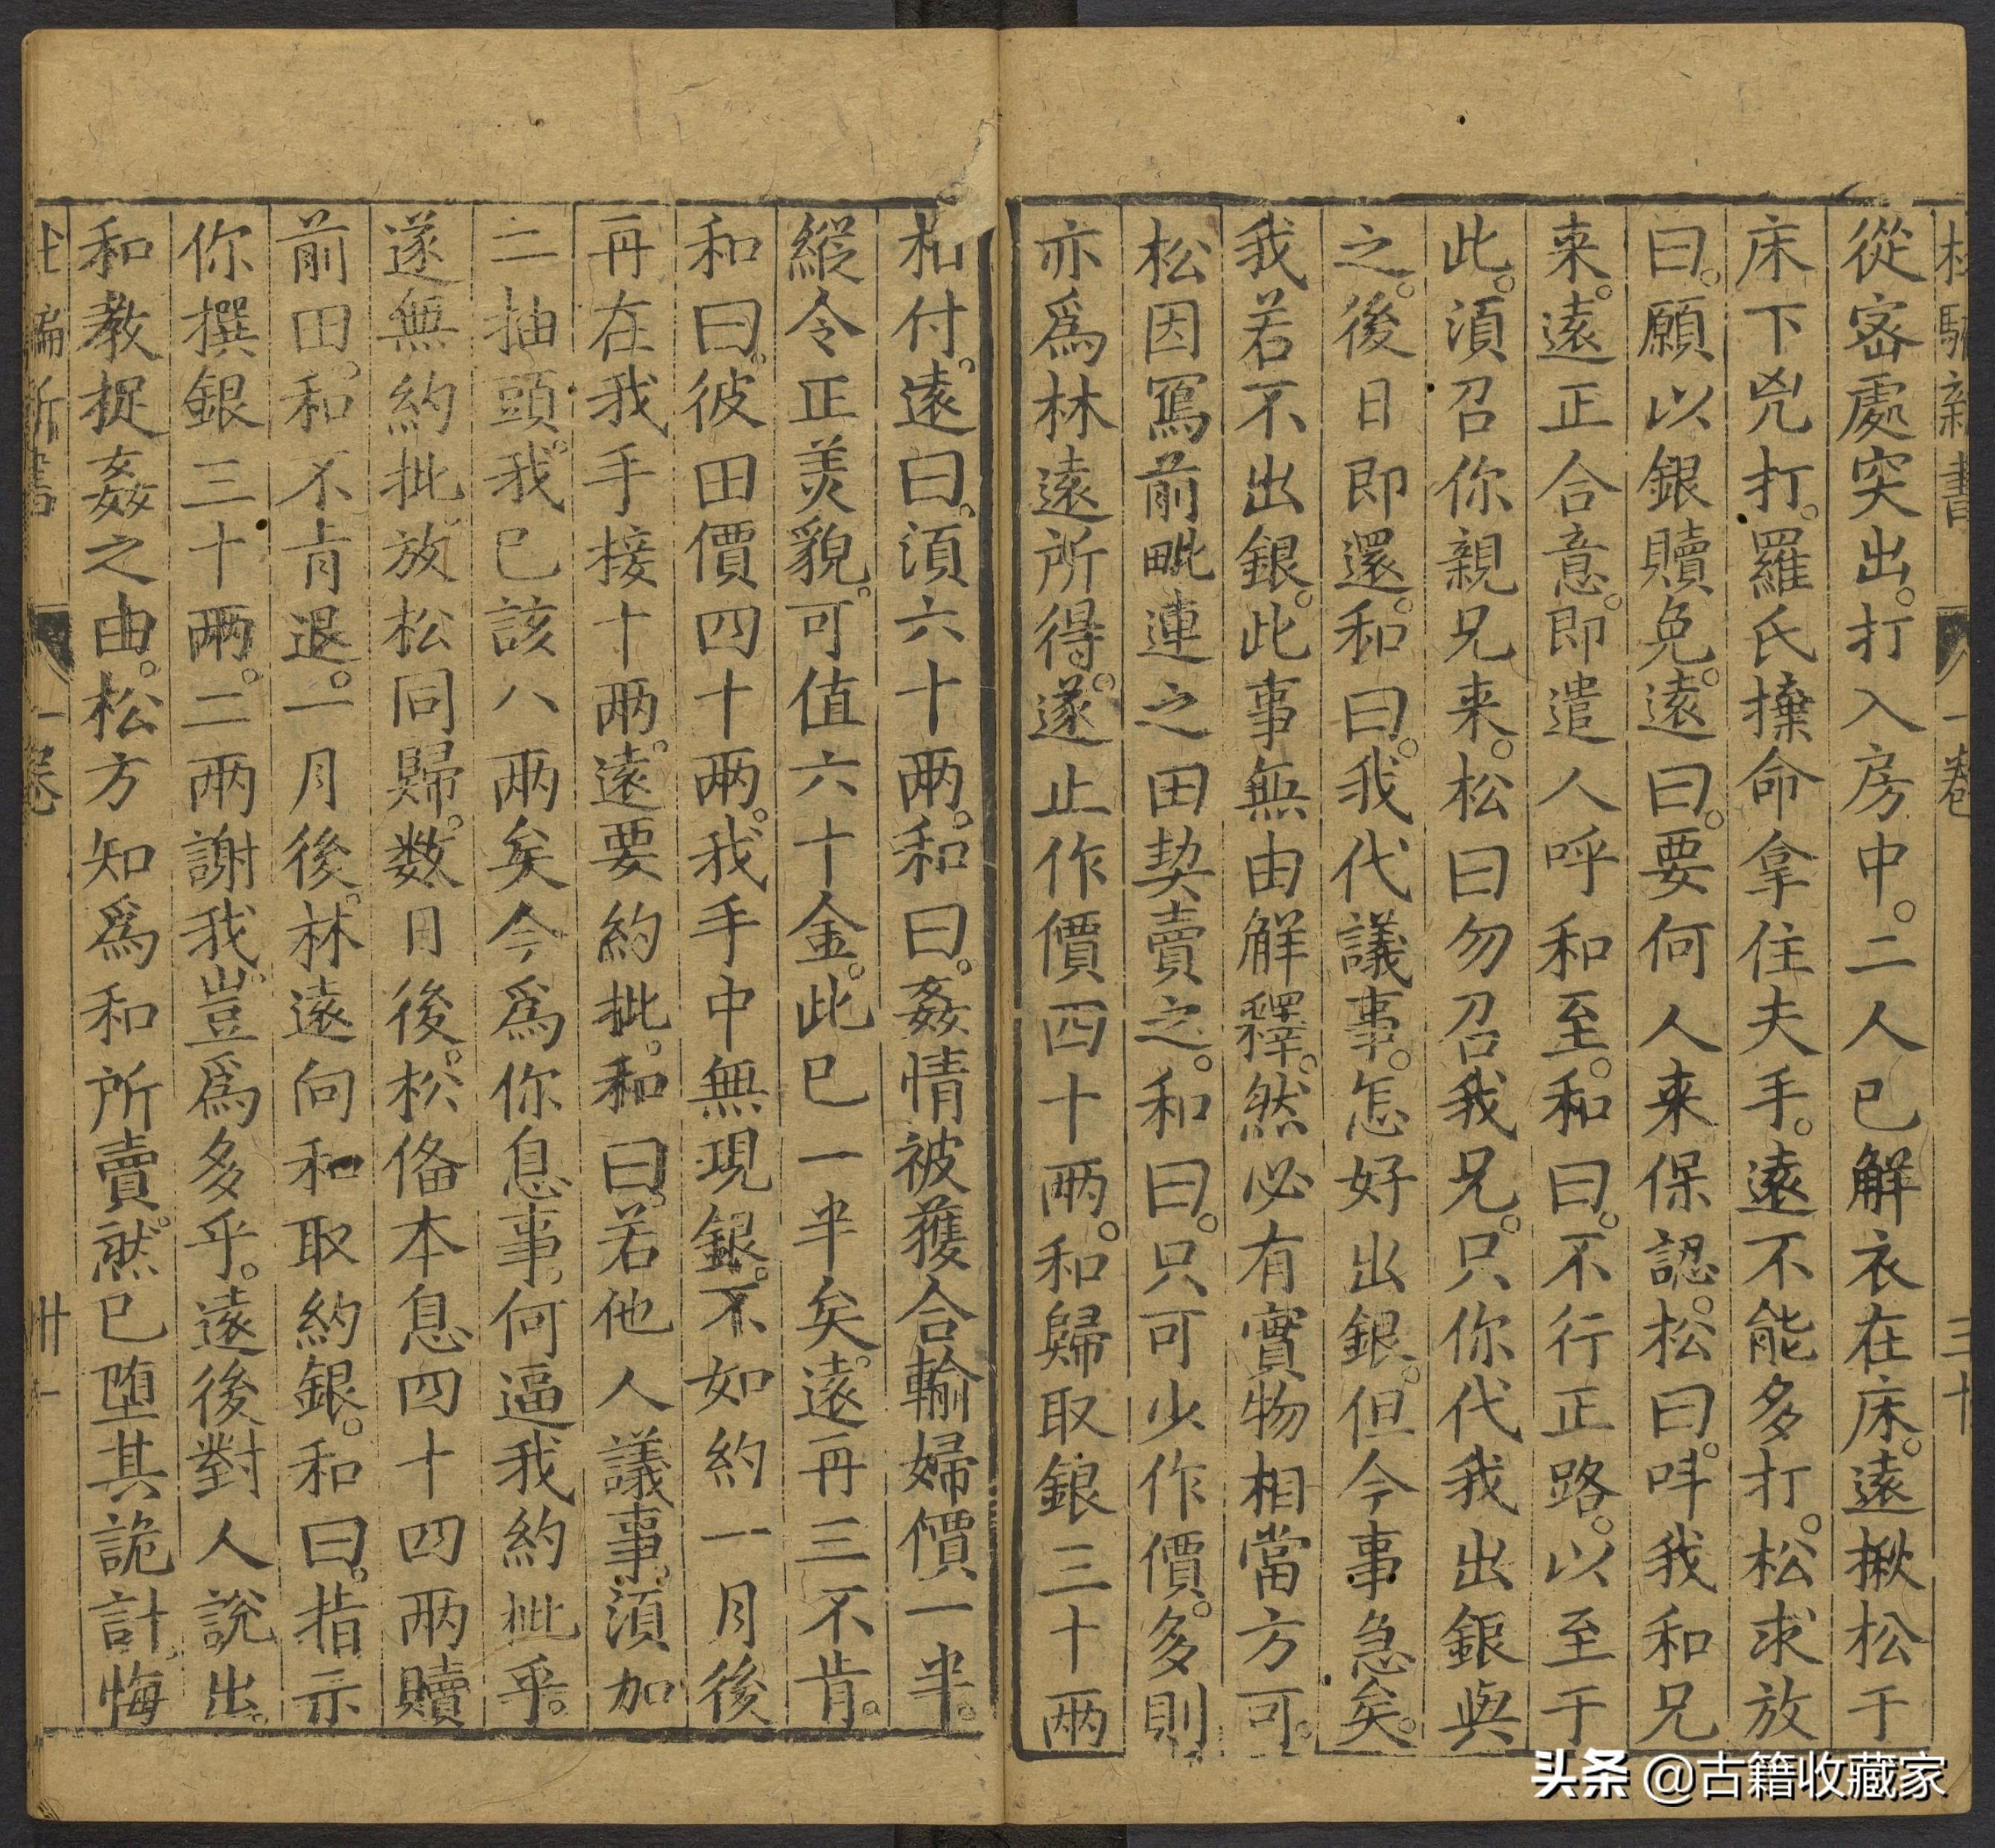 杜騙新書 一卷 三十
從密處突出。打入房中。二人已解衣在床。遠揪松于
床下兇打。羅氏棄命拿住夫手。遠不能多打。松求放
曰。願以銀贖免。遠曰。要何人来保認。松曰。呌我和兄
来。遠正合意。即遣人呼和至。和曰。不行正路。以至于
此。湏召你親兄来。松曰勿召我兄。只你代我出銀與
之。後日即還。和曰。我代議事。怎好出銀。但今事急矣。
我若不出銀。此事無由觧釋。然必有實物相當方可。
松因寫前毗連之田契賣之。和曰。只可少作價。多則
亦爲林遠所得。遂止作價四十兩。和歸取銀三十兩
柘付。遠曰。湏六十兩。和曰。姦情被獲合輸婦價一半。
縱令正美貌。可值六十金。此已一半矣。遠再三不肯。
和曰。彼田價四十兩。我手中無現銀。不如約一月後
再在我手接十兩。遠要約批。和曰。若他人議事。湏加
二抽頭。我已該八兩矣今爲你息事。何逼我約批乎。
遂無約批。放松同歸。数月後。松俻本息四十四兩贖
前田。和不肯退。一月後。林遠向和取約銀。和曰。指示
你撰銀三十兩。二兩謝我。豈爲多乎。遠後對人說出。
和教捉姦之由。松方知爲和所賣。然已堕其詭計。悔
杜騙新書 一卷 卅一
头条 @古籍收藏家